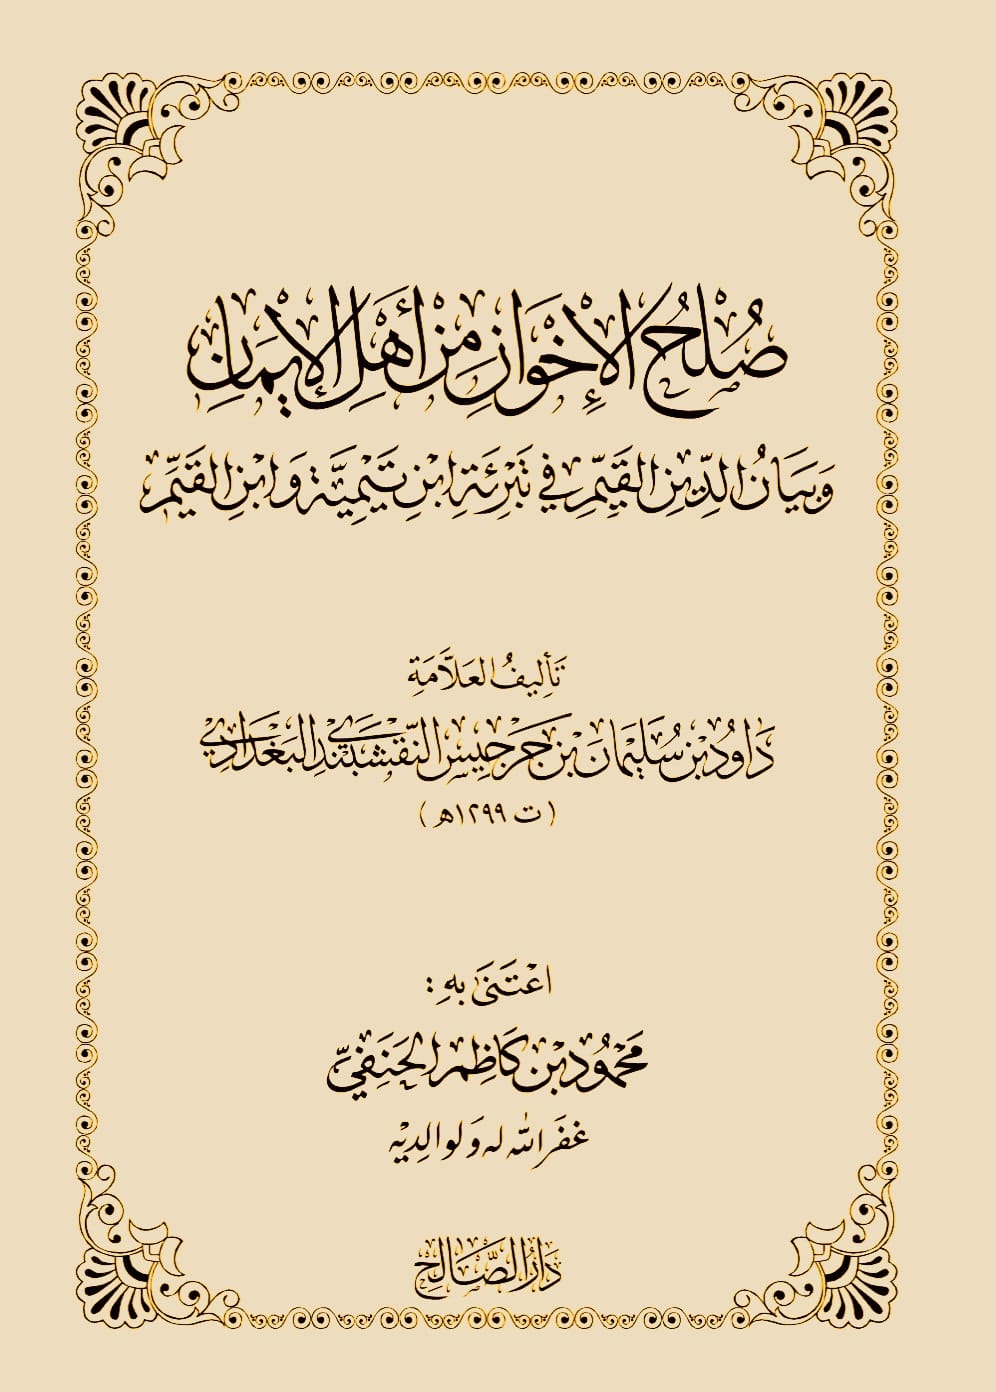 صُلْحُ الْإِخْوَانِ مِنْ أَهْلِ الْإِيْمَانِ
وَبَيَانُ الدِّينِ الْقَيِّمِ فِي تَبْرِئَةِ ابْنِ تَيْمِيَّةَ وَابْنِ الْقَيِّمِ
تَأْلِيفُ الْعَلَّامَةِ
دَاوُدْ بْنِ سُلَيْمَانَ بْنِ جَرْجِيسَ النَّقْشَبَنْدِيِّ الْبَغْدَادِيِّ
(ت ١٢٩٩هـ)
اعْتَنَى بِهِ:
مَحْمُودُ بْنُ كَاظِمٍ الْحَنَفِيُّ
غَفَرَ اللهُ لَهُ وَلِوَالِدَيْهِ
دَارُ الصَّالِحِ